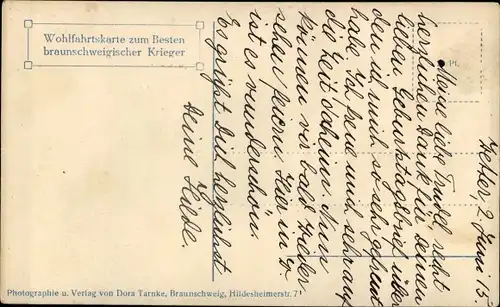 Wohlfahrtskarte zum Besten
braunschweigischer Krieger
Pl.
2. Juni 15.
Meine liebe Trudel, recht
herzlichen Dank für deinen
lieben Geburtstagsbrief, über
den ich mich so sehr gefreut
habe. Ich freue mich sehr auf
die Zeit daheim. Nun
können wir bald Wieder-
sehen feiern. Hier in
ist es wunderschön.
Es grüßt Dich herzlichst
Deine Hilde.
Photographie u. Verlag von Dora Tarnke, Braunschweig, Hildesheimerstr. 71